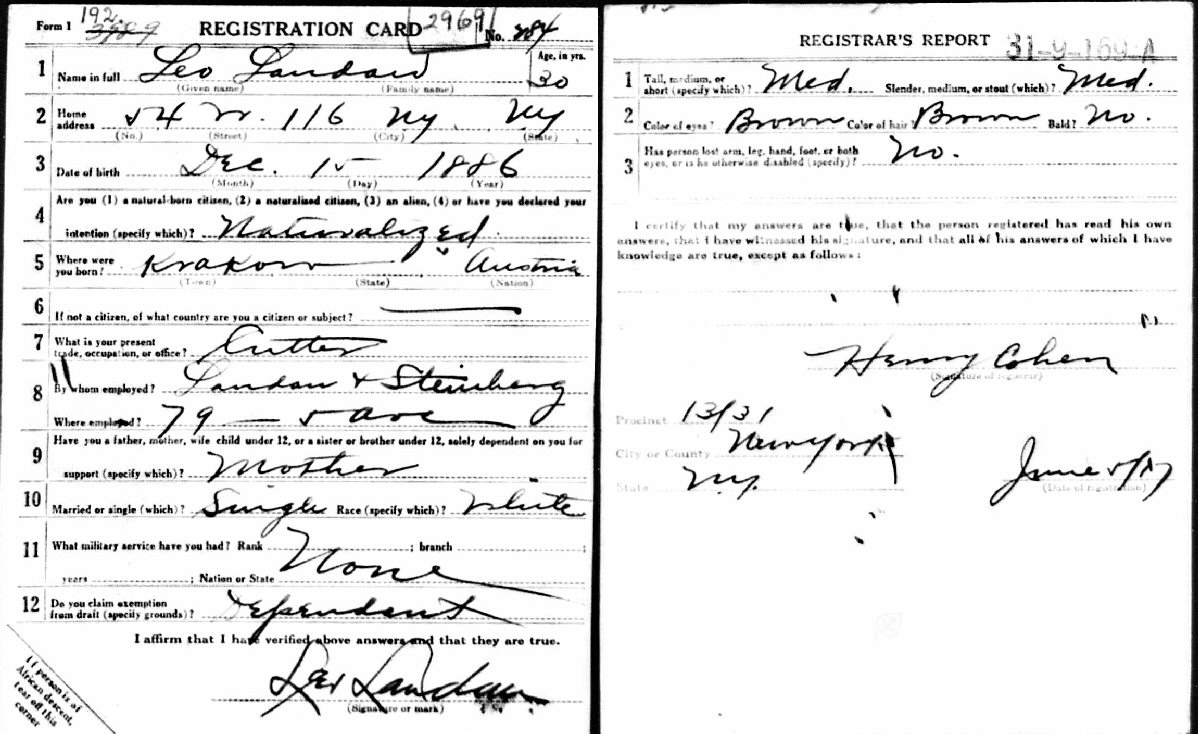 Form 1 192. 3989 REGISTRATION CARD 29691 No. 284
1 Name in full Leo Landau Age, in yrs. 30
(Given name) (Family name)
2 Home address 54 W. 116 Ny. Ny
(No.) (Street) (City) (State)
3 Date of birth Dec. 15 1886
(Month) (Day) (Year)
4 Are you (1) a natural-born citizen, (2) a naturalized citizen, (3) an alien, (4) or have you declared your
intention (specify which)? Naturalized
5 Where were you born? Krakow " Austria
(Town) (State) (Nation)
6 If not a citizen, of what country are you a citizen or subject? —
7 What is your present trade, occupation, or office? Cutter
8 By whom employed? Landau + Steinberg
Where employed? 79 — 5 ave
9 Have you a father, mother, wife child under 12, or a sister or brother under 12, solely dependent on you for
support (specify which)? Mother
10 Married or single (which)? Single Race (specify which)? White
11 What military service have you had? Rank None ; branch ;
years ; Nation or State
12 Do you claim exemption from draft (specify grounds)? Dependant
I affirm that I have verified above answers and that they are true.
Leo Landau
(Signature or mark)
If person is of
African descent,
tear off this
corner
REGISTRAR'S REPORT 31-9-169-A
1 Tall, medium, or short (specify which)? Med. Slender, medium, or stout (which)? Med.
2 Color of eyes? Brown Color of hair? Brown Bald? No.
3 Has person lost arm, leg, hand, foot, or both
eyes, or is he otherwise disabled (specify)? No.
I certify that my answers are true, that the person registered has read his own
answers, that I have witnessed his signature, and that all of his answers of which I have
knowledge are true, except as follows:
Henry Cohen
(Signature of registrar)
Precinct 13/31
City or County New York
State Ny. June 5/17
(Date of registration)